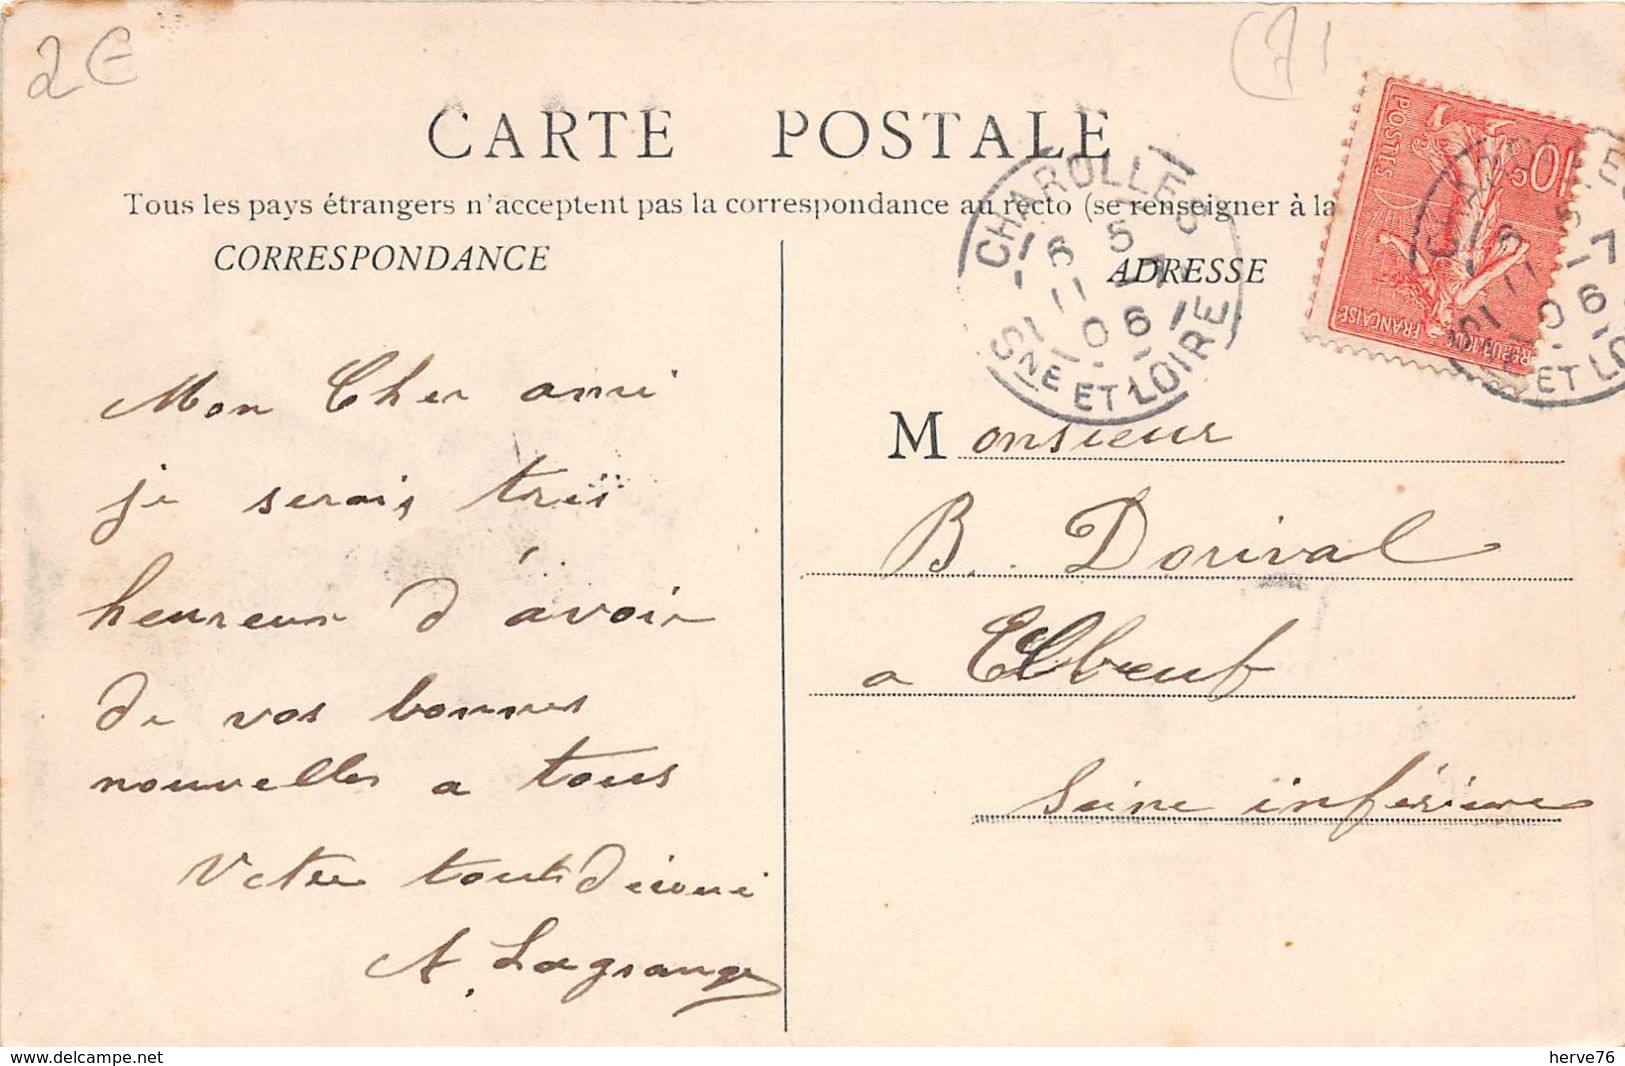 2€
(71
CARTE POSTALE
Tous les pays étrangers n'acceptent pas la correspondance au recto (se renseigner à la
CORRESPONDANCE
ADRESSE
CHAROLLES
6 5
11
06
SNE ET LOIRE
10c
POSTES
REPUBLIQUE FRANÇAISE
Mon Cher ami
je serais très
heureux d'avoir
de vos bonnes
nouvelles a tous
Votre tout dévoué
A. Lagrange
Monsieur
B. Dorival
a Elbeuf
Seine inférieure
www.delcampe.net
herve76